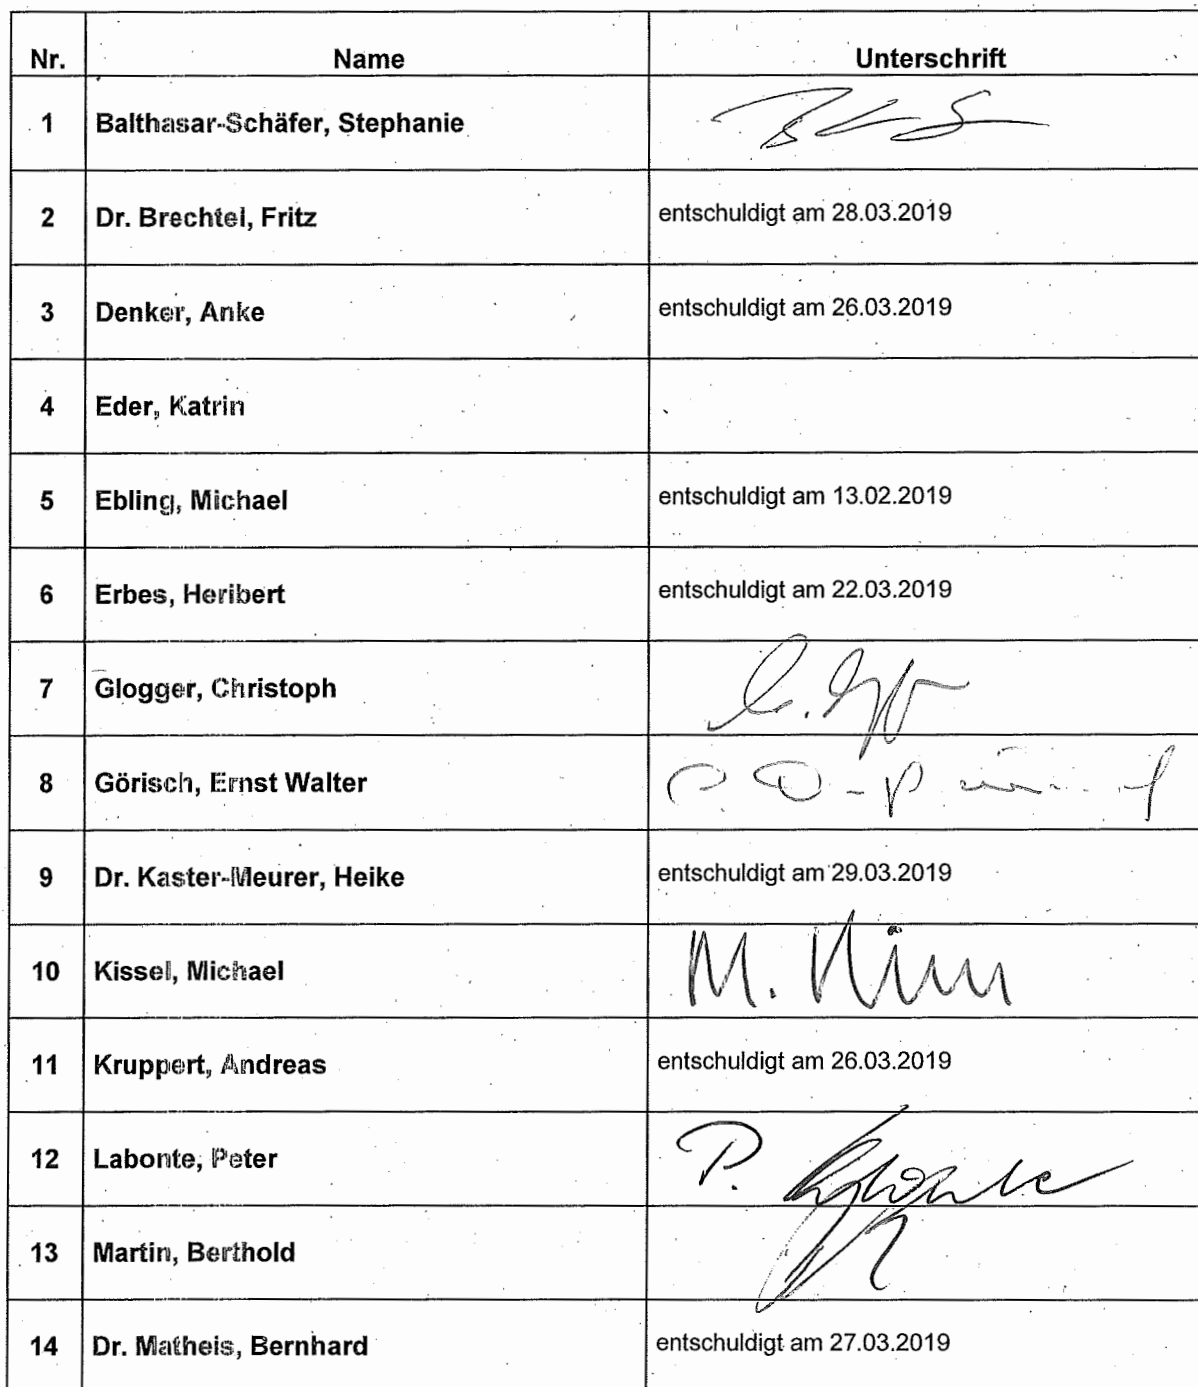 Nr. Name Unterschrift
1 Balthasar-Schäfer, Stephanie
2 Dr. Brechtel, Fritz entschuldigt am 28.03.2019
3 Denker, Anke entschuldigt am 26.03.2019
4 Eder, Katrin
5 Ebling, Michael entschuldigt am 13.02.2019
6 Erbes, Heribert entschuldigt am 22.03.2019
7 Glogger, Christoph
8 Görisch, Ernst Walter
9 Dr. Kaster-Meurer, Heike entschuldigt am 29.03.2019
10 Kissel, Michael M.
11 Kruppert, Andreas entschuldigt am 26.03.2019
12 Labonte, Peter P. Labonte
13 Martin, Berthold
14 Dr. Matheis, Bernhard entschuldigt am 27.03.2019